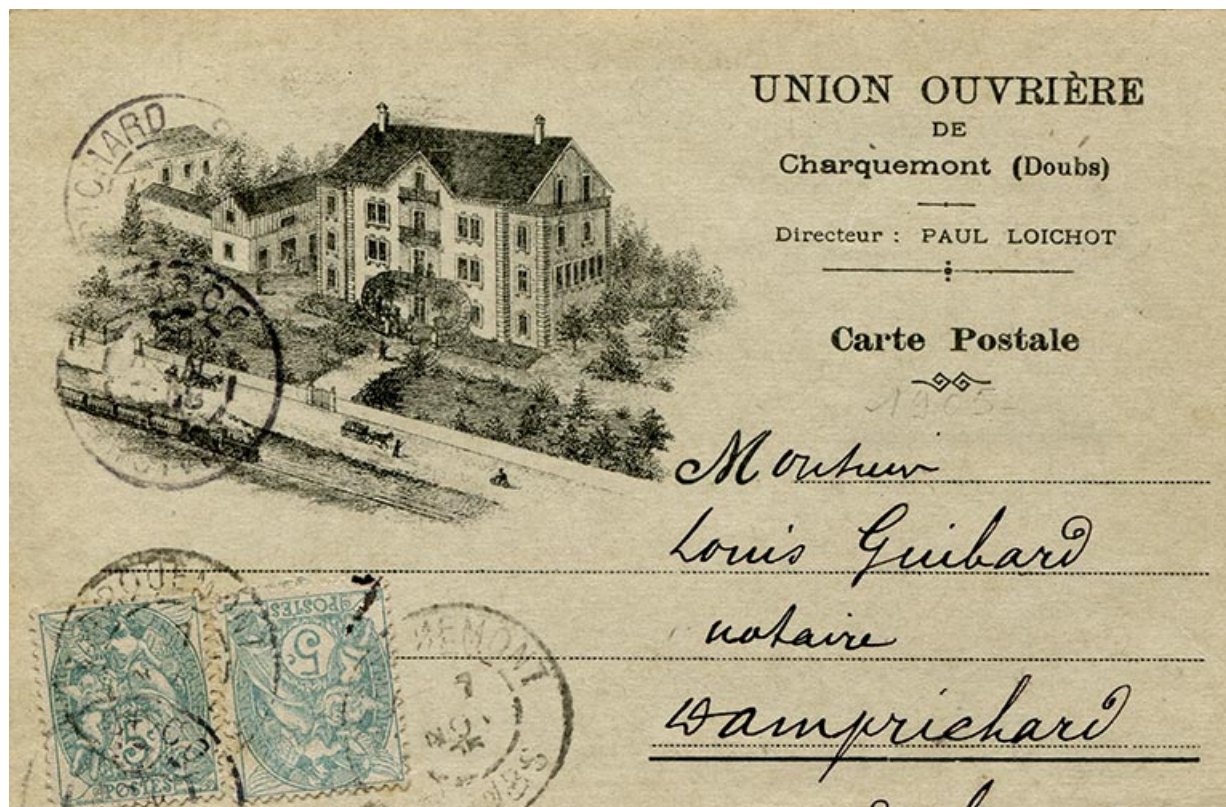 UNION OUVRIÈRE
DE
Charquemont (Doubs)
Directeur : PAUL LOICHOT
Carte Postale
1905
Monsieur
Louis Guibard
notaire
Damprichard
CHARD
QUEM
POSTES
5c
POSTES
5c
EMONT
7